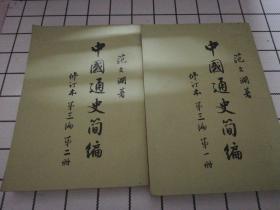 范文澜著
中國通史简編
修订本 第三编 第二册
范文澜著
中國通史简編
修订本 第三编 第一册